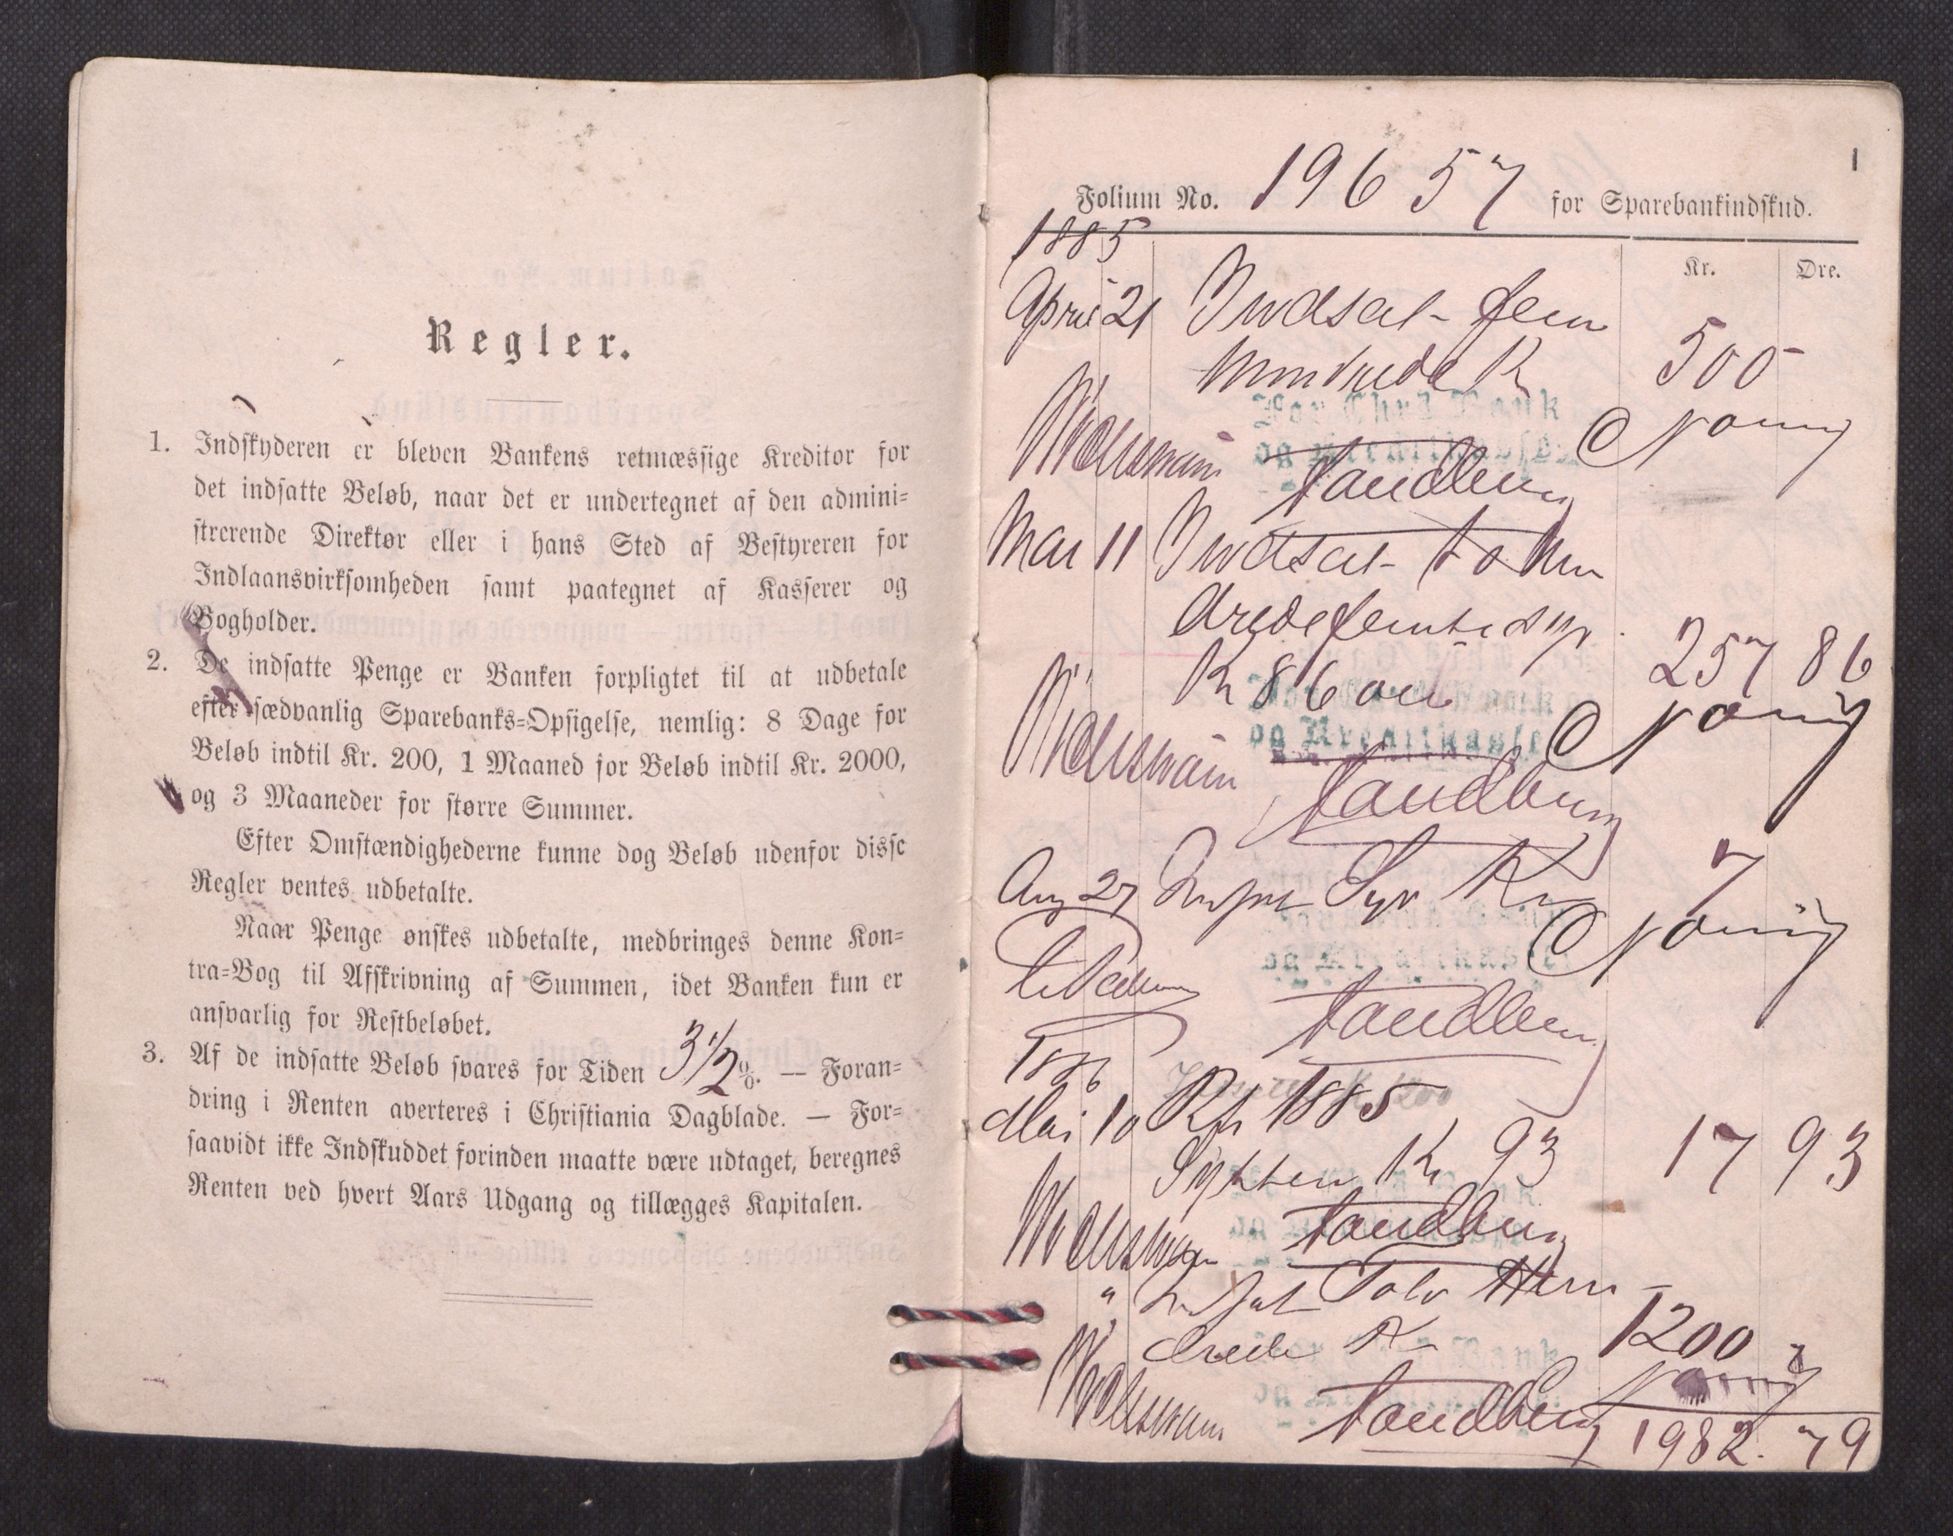 Regler.
1. Indskyderen er bleven Bankens retmæssige Kreditor for
det indsatte Beløb, naar det er undertegnet af den admini-
strerende Direktør eller i hans Sted af Bestyreren for
Indlaansvirksomheden samt paategnet af Kasserer og
Bogholder.
2. De indsatte Penge er Banken forpligtet til at udbetale
efter sædvanlig Sparebanks-Opsigelse, nemlig: 8 Dage for
Beløb indtil Kr. 200, 1 Maaned for Beløb indtil Kr. 2000,
og 3 Maaneder for større Summer.
Efter Omstændighederne kunne dog Beløb udenfor disse
Regler ventes udbetalte.
Naar Penge ønskes udbetalte, medbringes denne Kon-
tra-Bog til Afskrivning af Summen, idet Banken kun er
ansvarlig for Restbeløbet.
3. Af de indsatte Beløb svares for Tiden 3 1/2 %. — Foran-
dring i Renten averteres i Christiania Dagblade. — For-
saavidt ikke Indskuddet forinden maatte være udtaget, beregnes
Renten ved hvert Aars Udgang og tillægges Kapitalen.
1
Folium No. 19657 for Sparebankindskud.
1885
Kr. Øre.
April 21 Indsat fem
hundrede Kr 500 -
Tandberg
Mai 11 Indsat to hun
drede femti syv
Kr 86 øre 257 86
og Kreditkasse
Tandberg
Aug 27 Indsat Syv Kr 7
Tandberg
1886
Mai 10 Rts 1885
Sytten Kr 93 17 93
Tandberg
" Indsat Tolv Hun-
drede Kr 1200 -
Tandberg
1982. 79